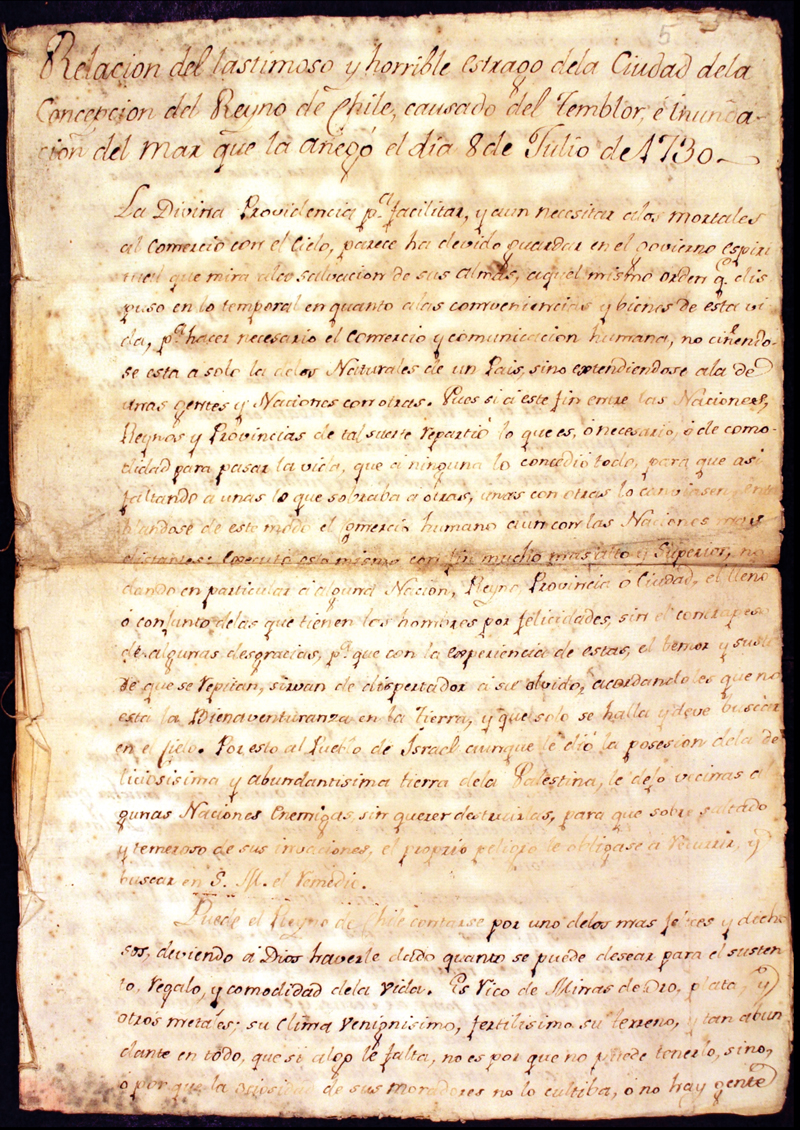 5
Relacion del lastimoso y horrible estrago dela Ciudad dela
Concepcion del Reyno de Chile, causado del Temblor, é inunda-
cion del mar que la anegó el dia 8 de Julio de 1730
La Divina Providencia pa. facilitar, y aun necesitar alos mortales
al comercio con el Cielo, parece ha devido guardar en el govierno espiri
tual que mira ala salvacion de sus almas, aquel mismo orden q. dis
puso en lo temporal en quanto alas conveniencias y bienes de esta vi
da, pa. hacer necesario el comercio y comunicacion humana, no ciñendo-
se esta a solo la delos Naturales de un Pais, sino extendiendose ala de
unas gentes y Naciones con otras. Pues si á este fin entre las Naciones,
Reynos y Provincias de tal suerte repartió lo que es, ó necesario, ó de como-
didad para pasar la vida, que á ninguna lo concedio todo, para que asi
faltando a unas lo que sobraba a otras, unas con otras lo
de este modo el comercio humano aun con las Naciones mas
distantes: executó esto mismo con fin mucho mas alto y Superior, no
dando en particular á alguna Nacion, Reyno, Provincia o Ciudad, el lleno
ó conjunto delas que tienen los hombres por felicidades, sin el contrapeso
de algunas desgracias, pa. que con la experiencia de estas, el temor y susto
de que se repitan, sirvan de dispertador á su olvido, acordandoles que no
esta la Bienaventuranza en la Tierra, y que solo se halla y deve buscar
en el Cielo. Por esto al Pueblo de Israel aunque le dió la posesion dela de
liciosisima y abundantisima tierra dela Palestina, le dejó vecinas al
gunas Naciones Enemigas, sin querer destruirlas, para que sobre saltado
y temeroso de sus invaciones, el proprio peligro le obligase a recurrir, y
buscar en S. M. el remedio.
Puede el Reyno de Chile contarse por uno delos mas felices y dicho
sos, deviendo á Dios haverle dado quanto se puede desear para el susten
to, regalo, y comodidad dela vida. Es rico de Minas de Oro, plata, y
otros metales; su Clima venignisimo, fertilisimo su terreno, y tan abun
dante en todo, que si algo le falta, no es por que no puede tenerlo, sino,
o por que la ociosidad de sus moradores no lo cultiba, o no hay gente